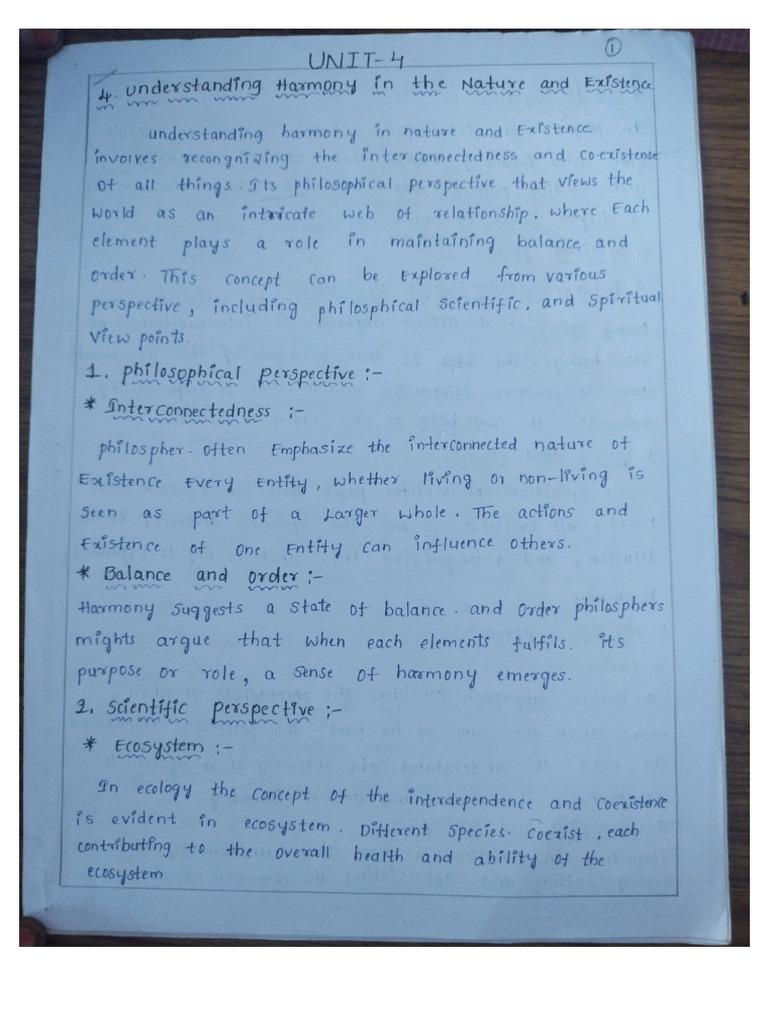 UNIT-4
1
4. Understanding Harmony in the Nature and Existence
understanding harmony in nature and Existence
involves recongnizing the interconnectedness and co-existense
of all things. Its philosophical perspective that views the
world as an intricate web of relationship. where Each
element plays a role in maintaining balance and
order. This concept can be Explored from various
perspective, including philosphical Scientific, and Spiritual
View points.
1. philosophical perspective :-
* Interconnectedness :-
philospher. often Emphasize the interconnected nature of
Existence Every Entity, whether living or non-living is
seen as part of a Larger whole. The actions and
Existence of one Entity can influence others.
* Balance and order :-
Harmony Suggests a state of balance. and order philosphers
mights argue that when each elements fulfils. its
purpose or role, a sense of harmony emerges.
2. Scientific perspective :-
* Ecosystem :-
In ecology the concept of the interdependence and coexistence
is evident in ecosystem. Different Species. Coexist, each
contributing to the overall health and ability of the
ecosystem